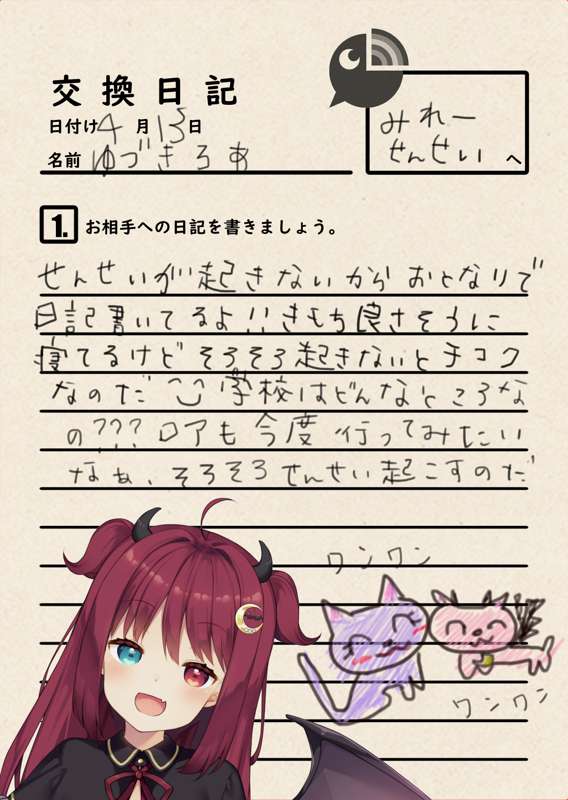 交換日記
日付け4月13日
名前 ゆづきろあ
みれー
せんせい へ
1. お相手への日記を書きましょう。
せんせいが起きないからおとなりで
日記書いてるよ!!きもち良さそうに
寝てるけどそろそろ起きないとチコク
なのだ 学校はどんなところな
の???ロアも今度行ってみたい
なぁ、そろそろせんせい起こすのだ
ワンワン
ワンワン